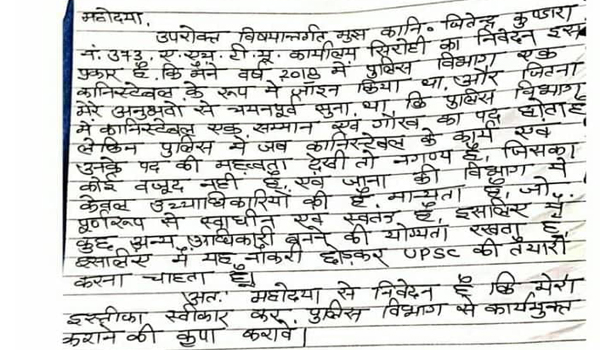 महोदया,
उपरोक्त विषयान्तर्गत मुझ कानि. जितेन्द्र कुण्डारा
नं. 373 ए.एच.टी.यू. कार्यालय सिरोही का निवेदन इस
प्रकार है, कि मैने वर्ष 2018 में पुलिस विभाग एक
कानिस्टेबल के रूप में जोइन किया था, और जितना
मेरे अनुभवो से चयनपूर्व सुना था, कि पुलिस विभाग
में कानिस्टेबल एक सम्मान एवं गौरव का पद होता है
लेकिन पुलिस में जब कानिस्टेबल के कार्य एवं
उनके पद की महत्वता देखी तो नगण्य है, जिसका
कोई वजूद नही है, एवं जाना की विभाग में
केवल उच्चाधिकारियों की है, मान्यता है, जो
पूर्णरूप से स्वाधीन एवं स्वतंत्र है, इसलिए मैं
कुछ अन्य अधिकारी बनने की योग्यता रखता हूँ,
इसलिए में यह नौकरी छोड़कर UPSC की तैयारी
करना चाहता हूँ।
अतः महोदया से निवेदन है कि मेरा
इस्तीफा स्वीकार कर, पुलिस विभाग से कार्यमुक्त
कराने की कृपा करावे।